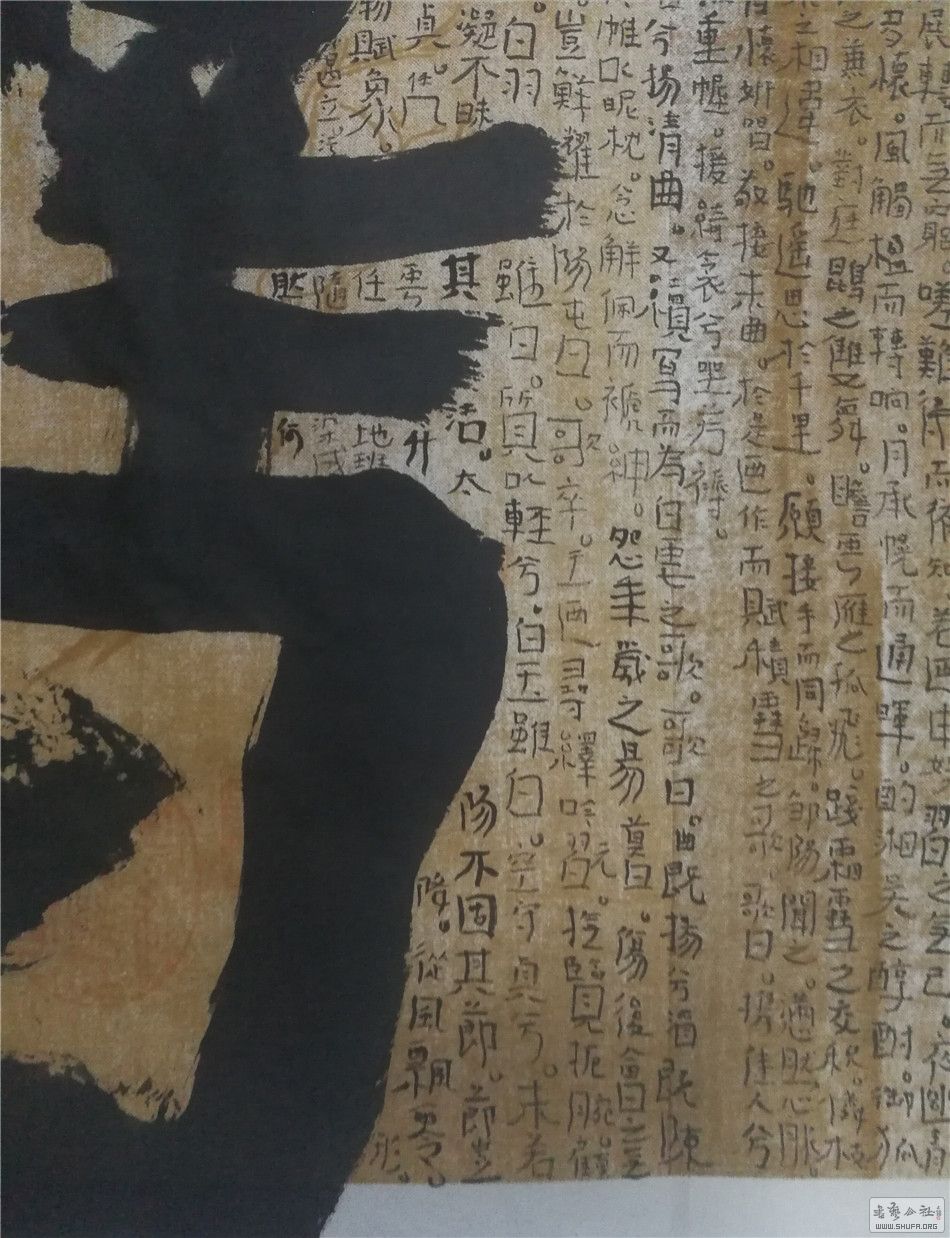 展轉而無窮。嗟難得而備知。若迺申娛習之無已。夜幽靜
多懷。風觸楹而轉響。月承幌而通暉。酌湘吳之醇酎。御狐
之兼衣。對庭鵾之雙舞。瞻雲雁之孤飛。踐霜雪之交積。憐枝
之相違。馳遙思於千里。願接手而同歸。鄒陽聞之。懣然心服
有懷妍唱。敬接末曲。於是迺作而賦積雪之歌。歌曰。攜佳人兮
重幄。援綺衾兮坐芳縟。
兮揚清曲。又續寫而為白雪之歌。歌曰。曲既揚兮酒既陳
帷以昵枕。念解佩而褫紳。怨年歲之易暮。傷後會之無
。豈鮮耀於陽春。歌卒。王迺尋繹吟翫。撫覽扼腕。顧
。白羽雖白。質以輕兮。白玉雖白。空守貞兮。未若
凝不昧其潔。太陽不固其節。節豈
貞。雲升陵。從風飄零。
物賦象。任地班形。
隨染成
然何
书法公社
WWW.SHUFA.ORG